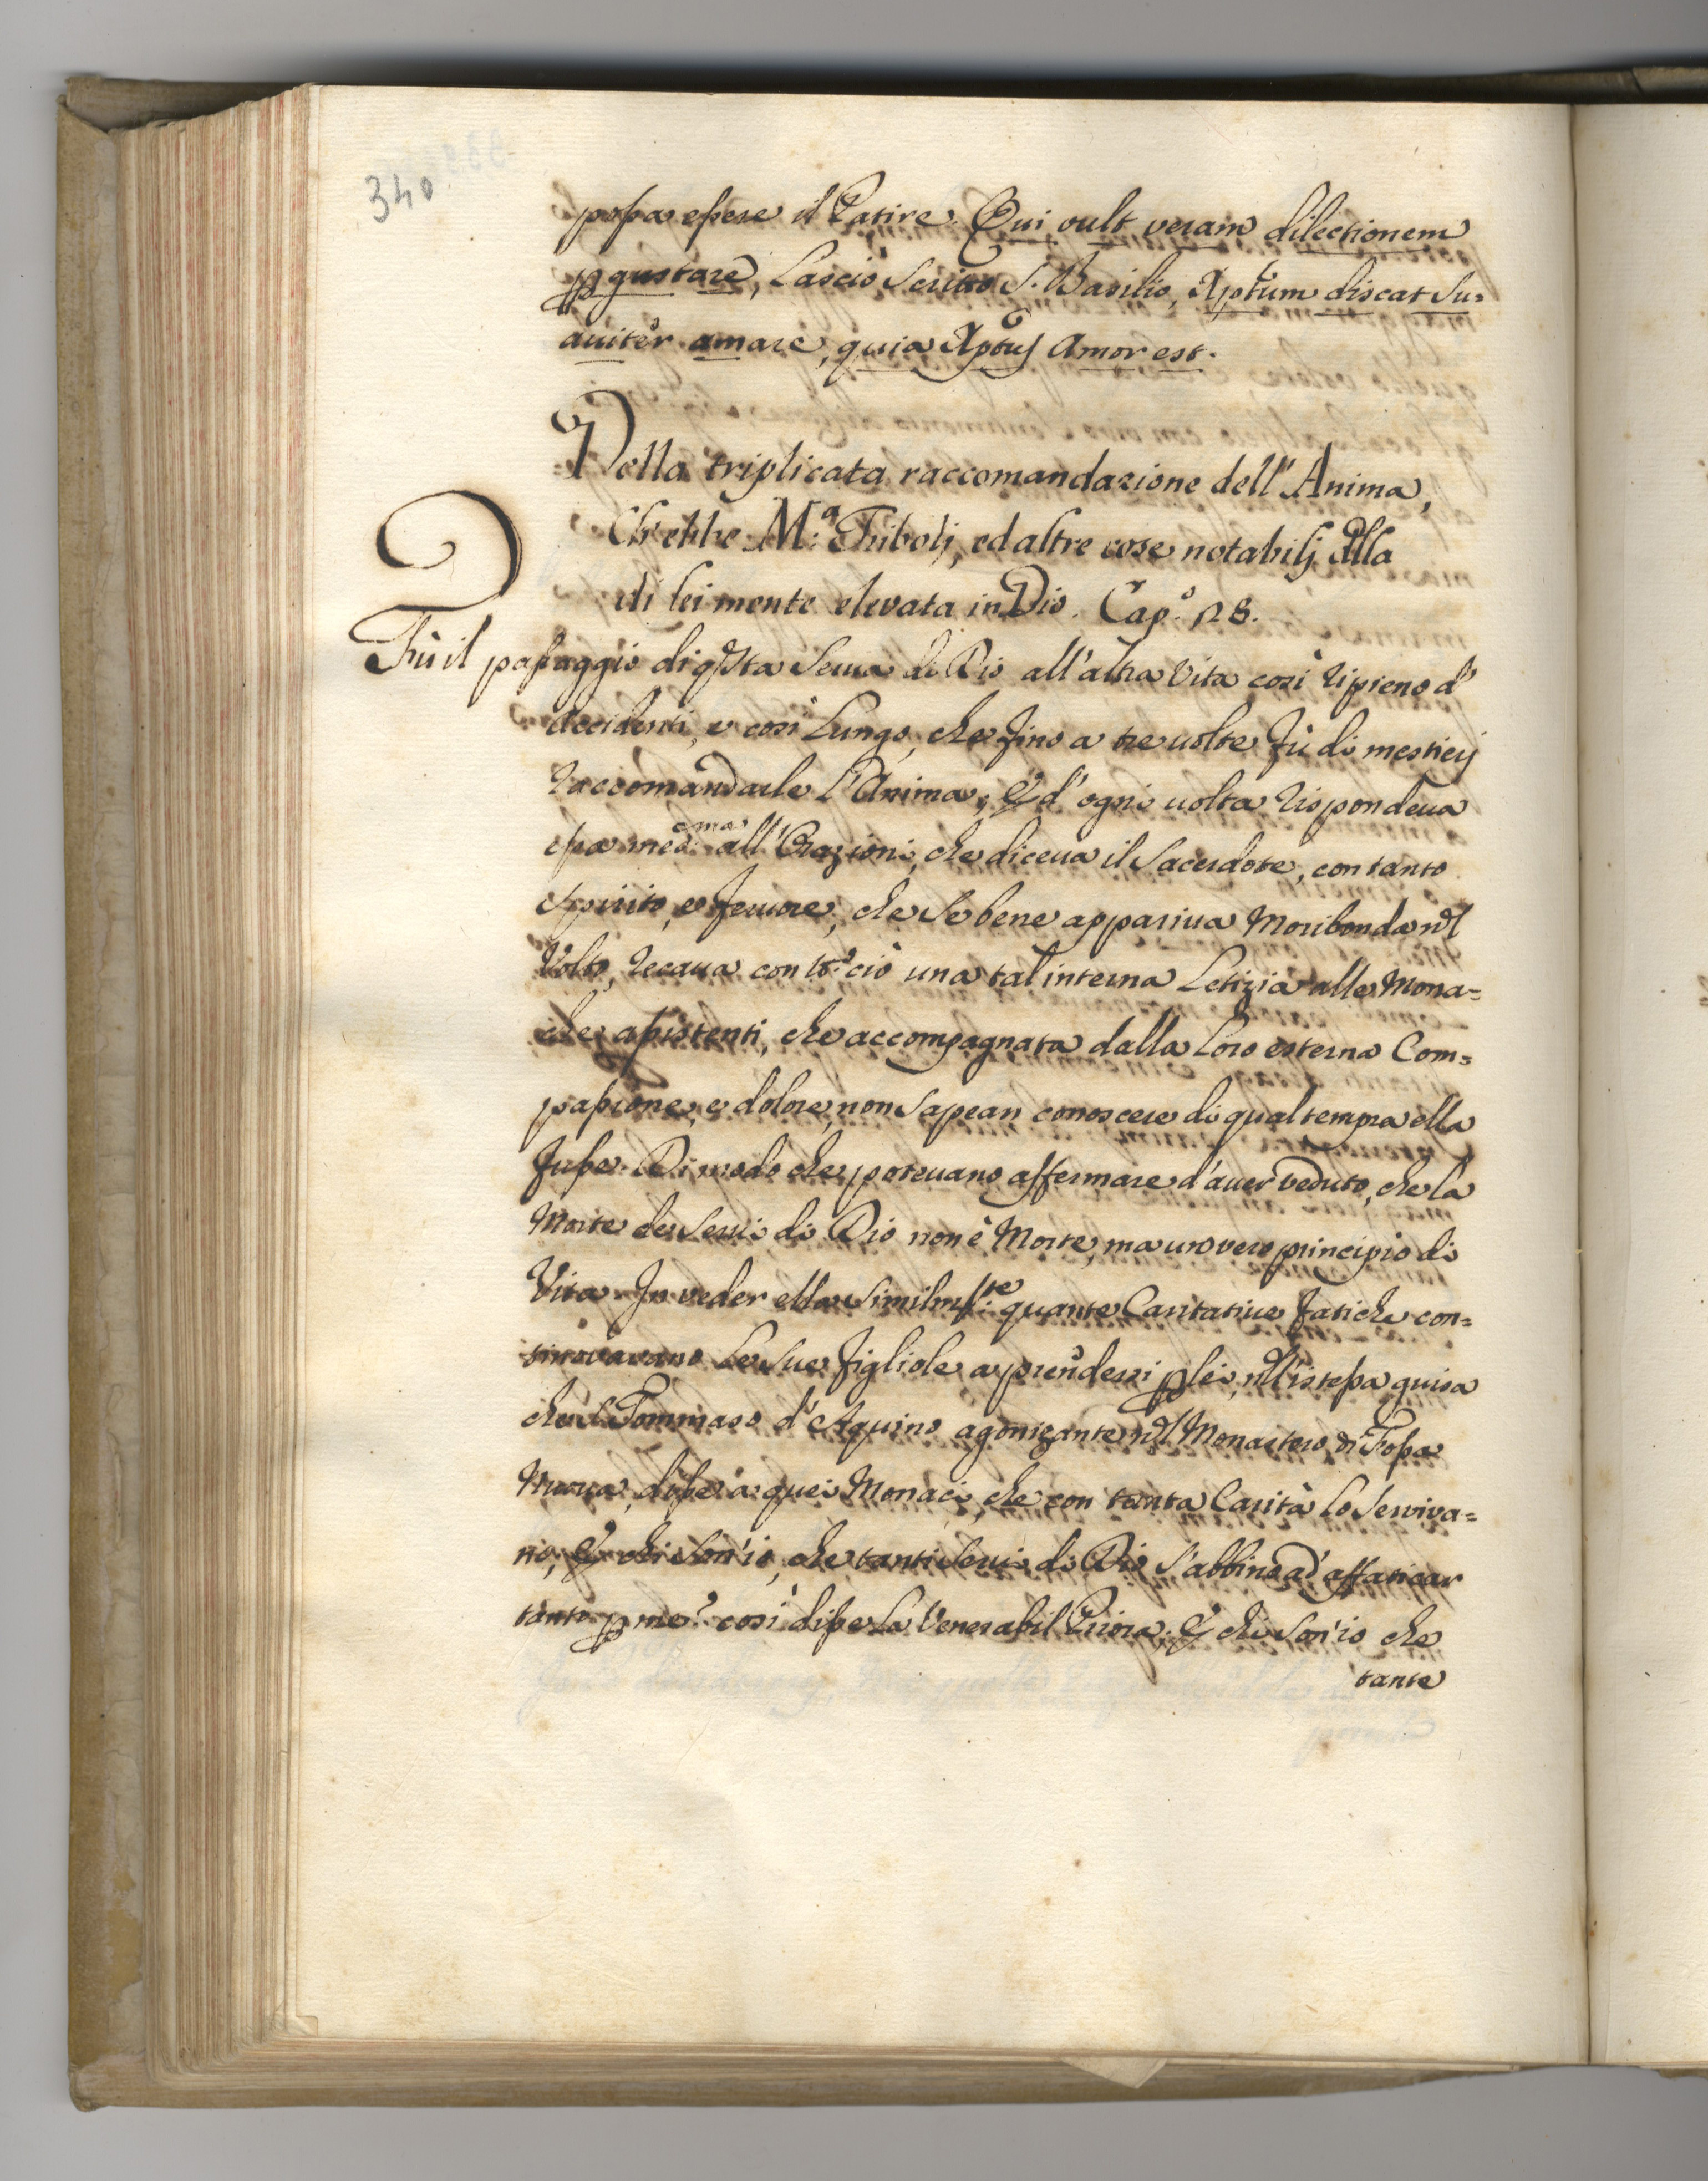 340
possa essere il Patire. Qui vult veram dilectionem
pgustare, Lasciò Scritto S. Basilio, Xptum discat Su=
auiter amare, quia Xptus Amor est.
Della triplicata raccomandazione dell'Anima,
Ch'ebbe M.ᵃ Triboli, ed altre cose notabilj dlla
di lei mente elevata in Dio. Cap.º 128.
Fù il passaggio di qsta Serua di Dio all'altra Vita così ripieno d'
Accidenti, e così Lungo, che fino a tre uolte fù di mestierj
raccomandarle l'Anima, & d'ogni uolta rispondeua
essa med.ᵉᵐᵃ all'Orazioni, che diceua il Sacerdote, con tanto
Spirito, e feruore, che Se bene appariua Moribonda nl
Volto, recaua con tt.º ciò una tal interna Letizia alle Mona=
che assistenti, che accompagnata dalla Loro esterna Com=
passione, e dolore, non Sapean conoscere di qual tempra ella
fusse. Di modo che poteuano affermare d'auer veduto, che la
Morte de Serui di Dio non è Morte, ma un vero principio di
Vita. In veder ella Similm.ᵗᵉ quante Caritatiue fatiche con=
tinovavano Le Sue figliole a prendersi p lei, nll'istessa guisa
che S. Tommaso d'Aquino agonizante nl Monastero di Fossa
Nuova, disse a quei Monaci, che con tanta Carità Lo Serviva=
no, & chi Son'io, che tanti Serui di Dio S'abbino ad affaticar
tanto p me? così disse La Venerabil Priora, & chi Son'io che
tante